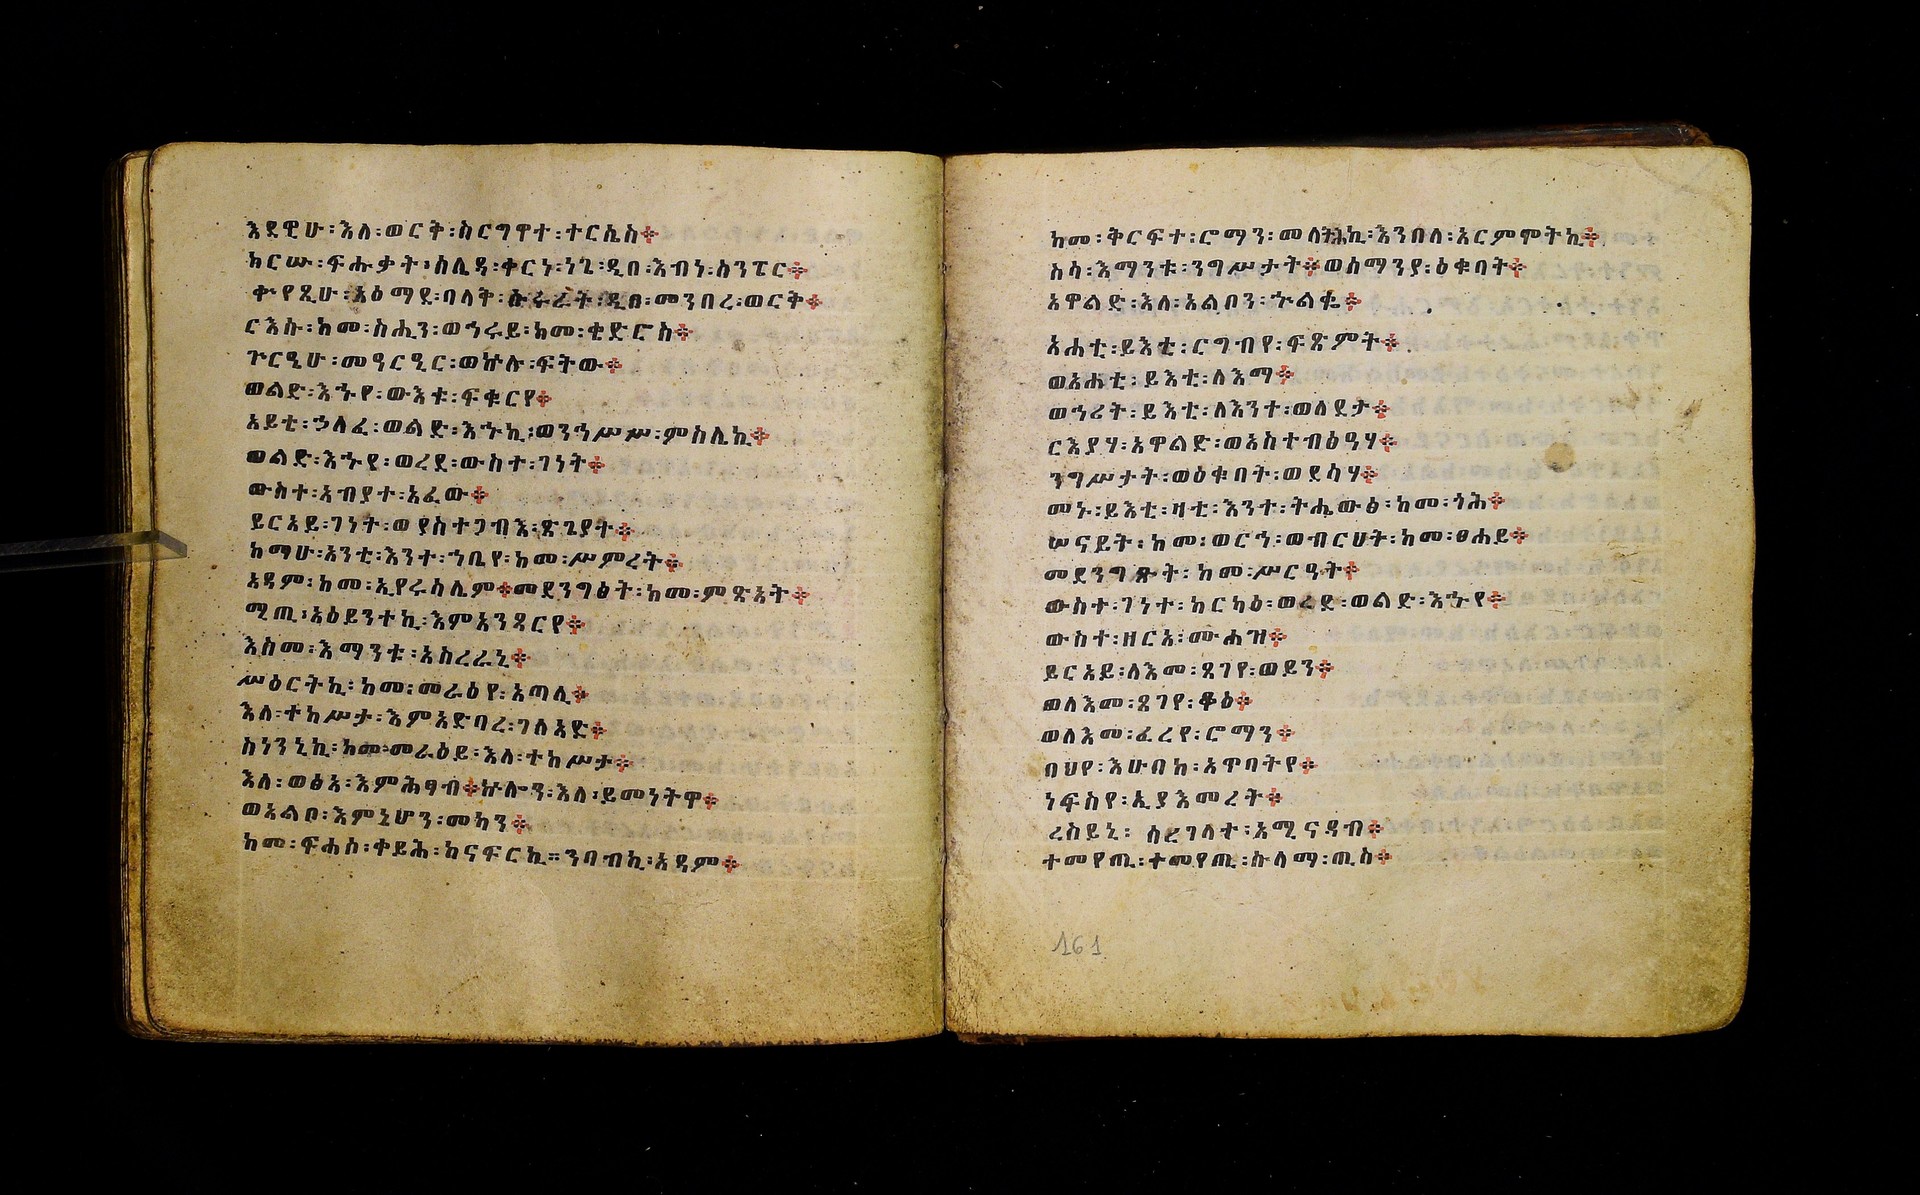 እደዊሁ፡እለ፡ወርቅ፡ስርግዋተ፡ተርሴስ፨
ከርሡ፡ፍሑቃት፡ሰሌዳ፡ቀርነ፡ነጌ፡ዲበ፡እብነ፡ሰንፔር፨
ቍየጺሁ፡አዕማደ፡ባላቅ፡ሱሩራት፡ዲበ፡መንበረ፡ወርቅ፨
ርእሱ፡ከመ፡ስሒን፡ወኅሩይ፡ከመ፡ቄድሮስ፨
ጕርዔሁ፡መዓርዒር፡ወኵሉ፡ፍትው፨
ወልድ፡እኁየ፡ውእቱ፡ፍቁርየ፨
አይቴ፡ኃለፈ፡ወልድ፡እኁኪ፡ወንኅሥሥ፡ምስሌኪ፨
ወልድ፡እኁየ፡ወረደ፡ውስተ፡ገነት፨
ውስተ፡አብያተ፡አፈው፨
ይርአይ፡ገነት፡ወያስተጋብእ፡ጽጌያት፨
ከማሁ፡አንቲ፡እንተ፡ኀቤየ፡ከመ፡ሥምረት፨
አዳም፡ከመ፡ኢየሩሳሌም፨መደንግፅት፡ከመ፡ምጽአት፨
ሚጢ፡አዕይንተኪ፡እምአንጻርየ፨
እስመ፡እማንቱ፡አስረራኒ፨
ሥዕርትኪ፡ከመ፡መራዕየ፡አጣሊ፨
እለ፡ተከሥታ፡እምአድባረ፡ገለአድ፨
ስነንኒኪ፡ከመ፡መራዕይ፡እለ፡ተከሥታ፨
እለ፡ወፅአ፡እምሕፃብ፨ኵሎን፡እለ፡ይመነትዋ፨
ወአልቦ፡እምኔሆን፡መካን፨
ከመ፡ፍሐስ፡ቀይሕ፡ከናፍርኪ።ንባብኪ፡አዳም፨
ከመ፡ቅርፍተ፡ሮማን፡መላትሕኪ፡እንበለ፡አርምሞትኪ፨
ስሳ፡እማንቱ፡ንግሥታት፨ወሰማንያ፡ዕቁባት፨
አዋልድ፡እለ፡አልቦን፡ኍልቈ፨
አሐቲ፡ይእቲ፡ርግብየ፡ፍጽምት፨
ወአሐቲ፡ይእቲ፡ለእማ፨
ወኅሪት፡ይእቲ፡ለእንተ፡ወለደታ፨
ርእያሃ፡አዋልድ፡ወአስተብፅዓሃ፨
ንግሥታት፡ወዕቁባት፡ወደሳሃ፨
መኑ፡ይእቲ፡ዛቲ፡እንተ፡ትሔውፅ፡ከመ፡ጎሕ፨
ሠናይት፡ከመ፡ወርኅ፡ወብርህት፡ከመ፡ፀሐይ፨
መደንግፅት፡ከመ፡ሥርዓት፨
ውስተ፡ገነተ፡ከርካዕ፡ወረደ፡ወልድ፡እኁየ፨
ውስተ፡ዘርአ፡ሙሐዝ፨
ይርአይ፡ለእመ፡ጸገየ፡ወይን፨
ወለእመ፡ጸገየ፡ቆዕ፨
ወለእመ፡ፈረየ፡ሮማን፨
በህየ፡እሁበከ፡አጥባትየ፨
ነፍስየ፡ኢያእመረት፨
ረስይኒ፡ሰረገላተ፡አሚናዳብ፨
ተመየጢ፡ተመየጢ፡ሱላማ፡ጢስ፨
161